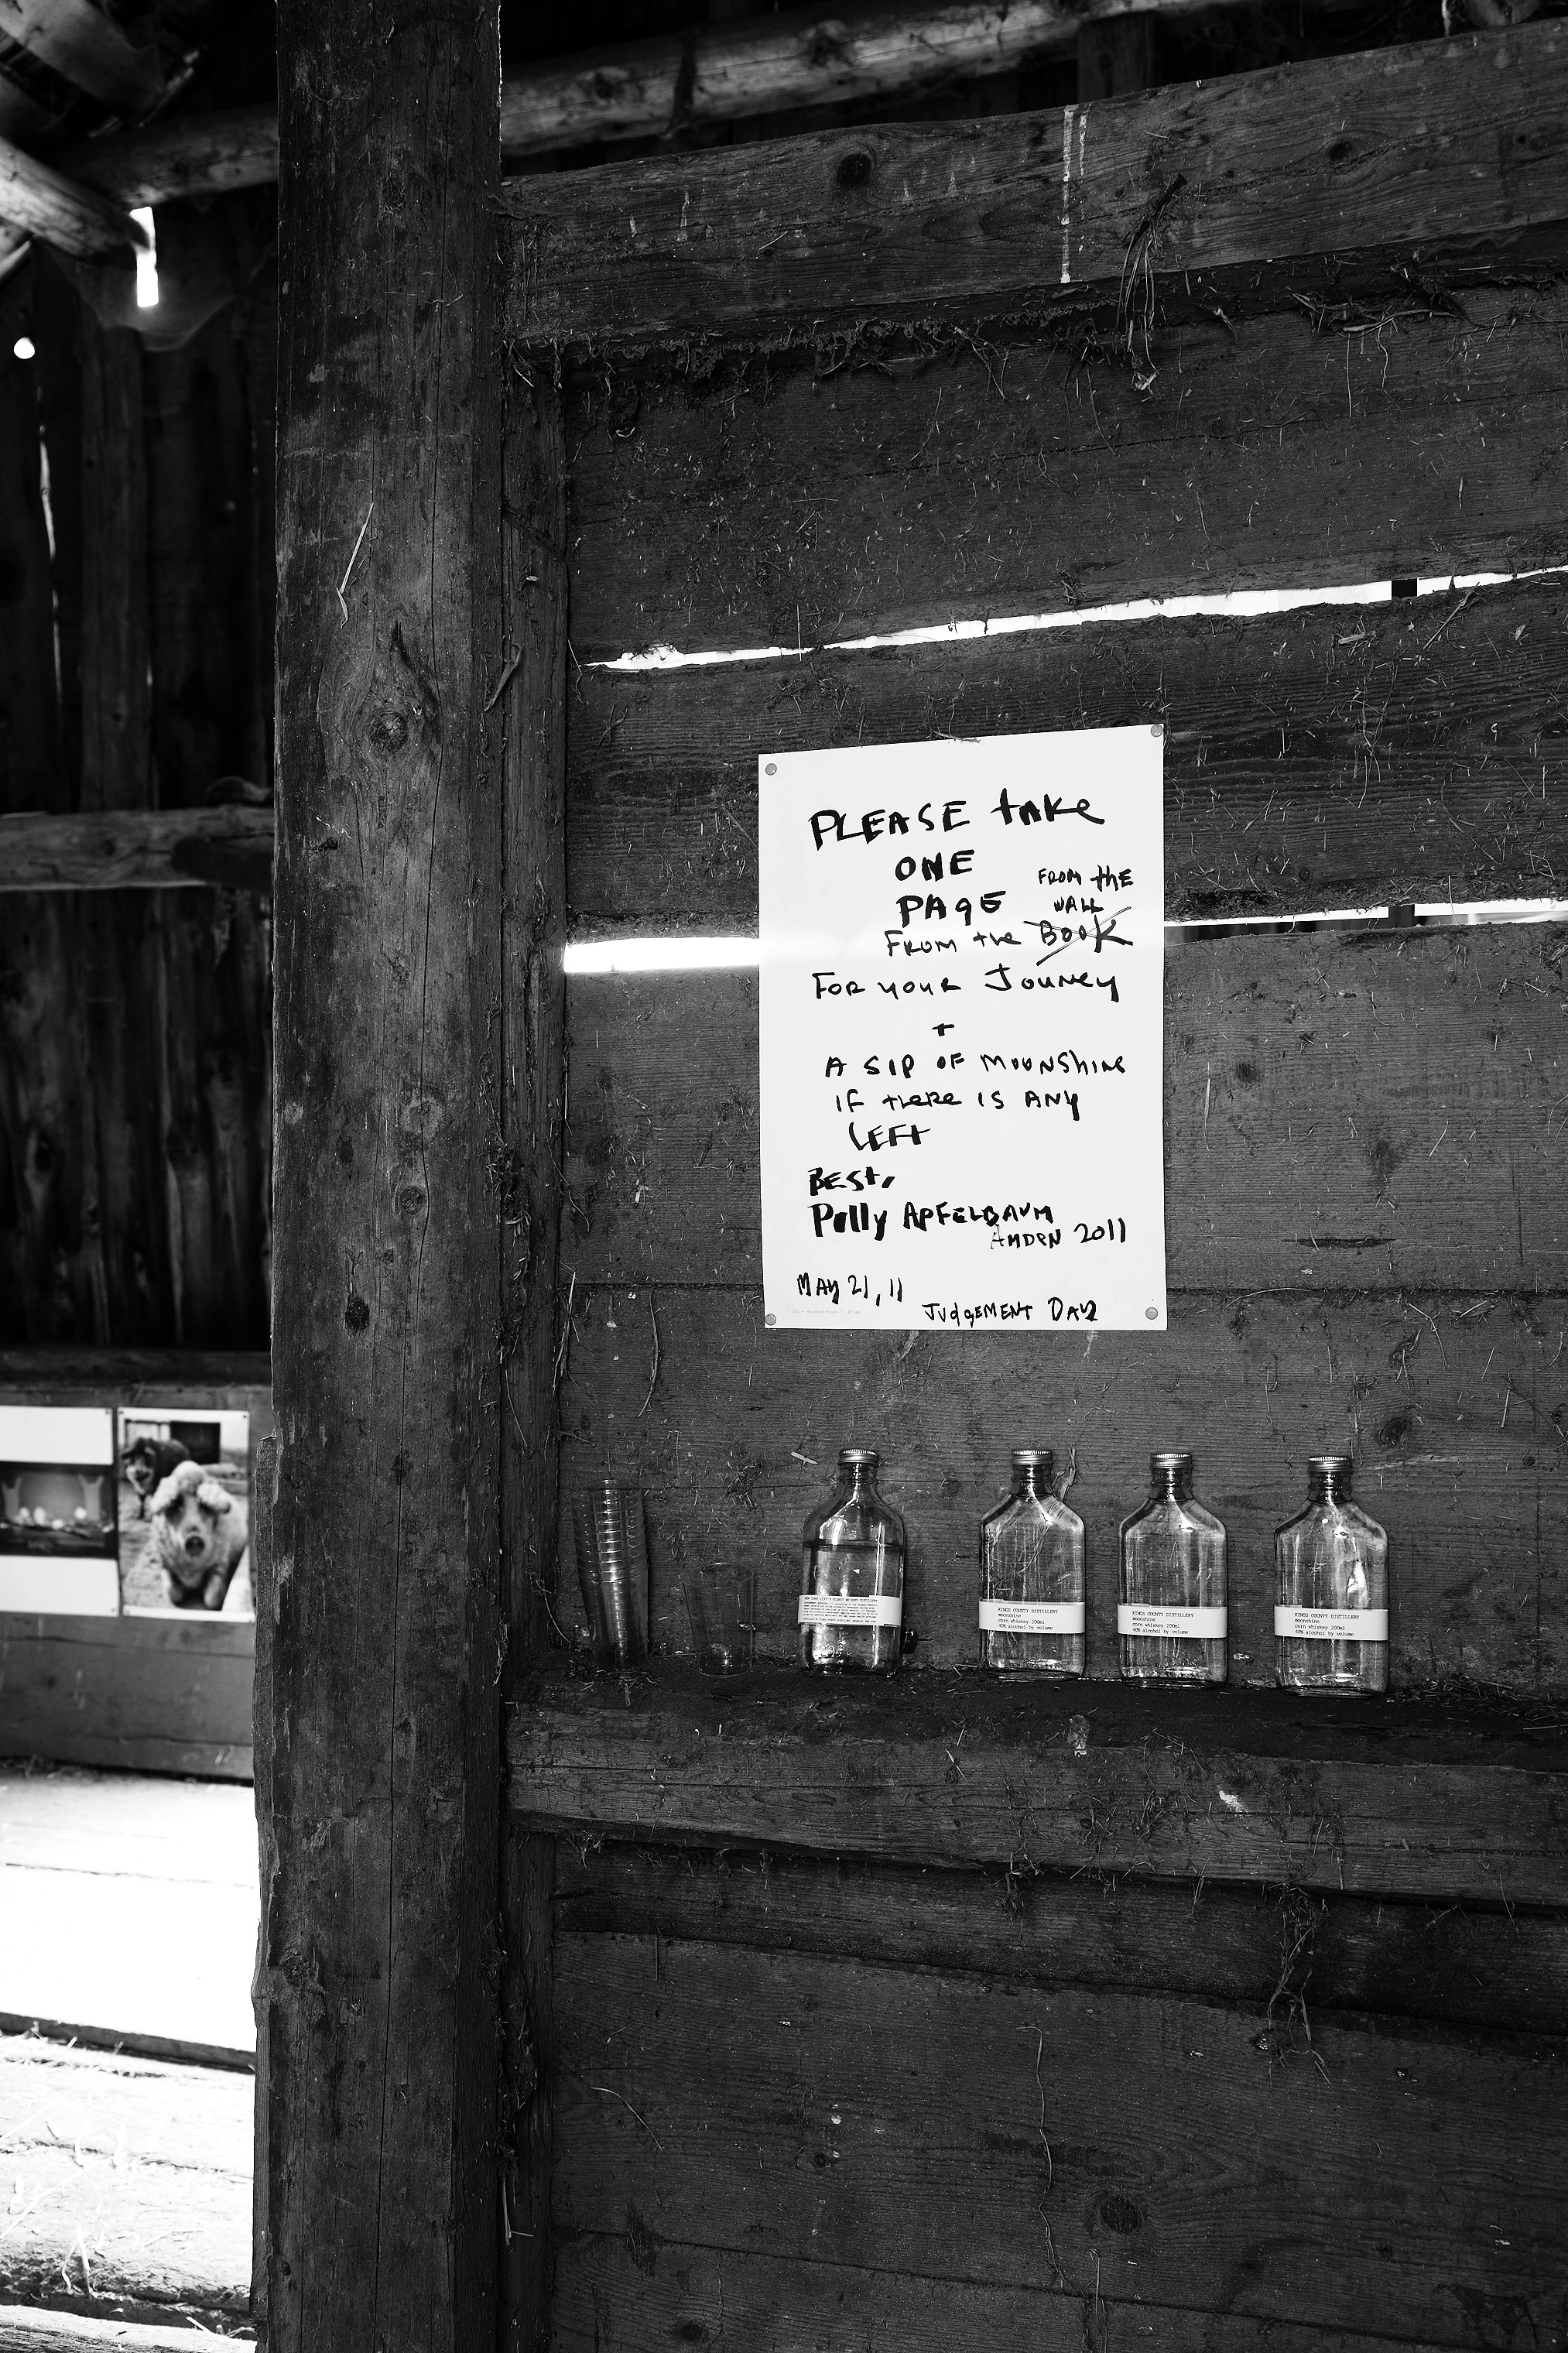 PLEASE take
ONE
PAgE
FROM the
WALL
FROM the BOOK
FOR YOUR JOUNEY
+
A SIP OF MOONShINE
IF tHERE IS ANY
LEFt
BESt,
Polly APFELBAUM
AMDEN 2011
MAY 21, 11
JUdgEMENt DAY
KINGS COUNTY DISTILLERY
moonshine
corn whiskey 200ml
40% alcohol by volume
KINGS COUNTY DISTILLERY
moonshine
corn whiskey 200ml
40% alcohol by volume
KINGS COUNTY DISTILLERY
moonshine
corn whiskey 200ml
40% alcohol by volume